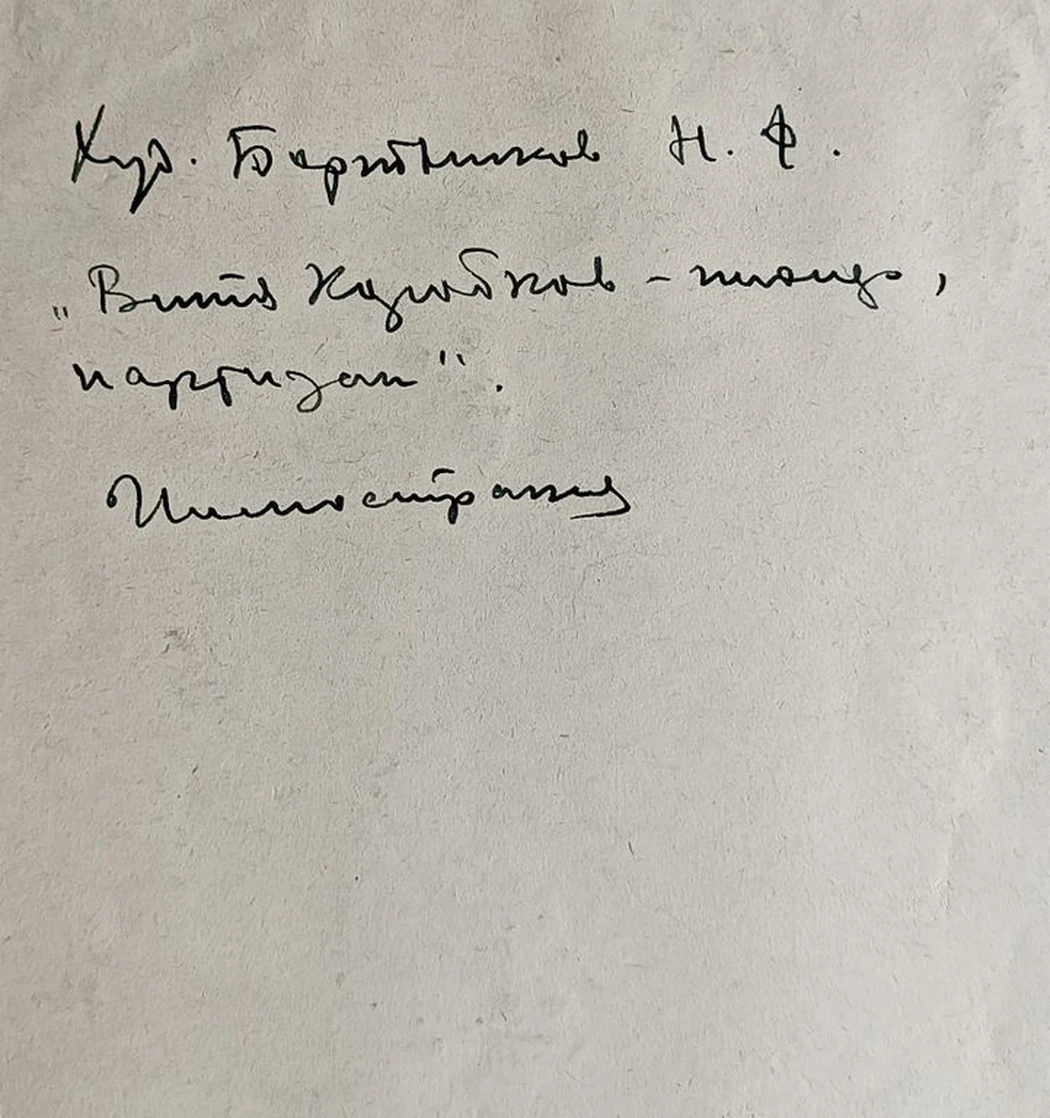 Худ. Бортников Н. Ф.
„Витя Коробков – пионер,
партизан“.
Иллюстрация